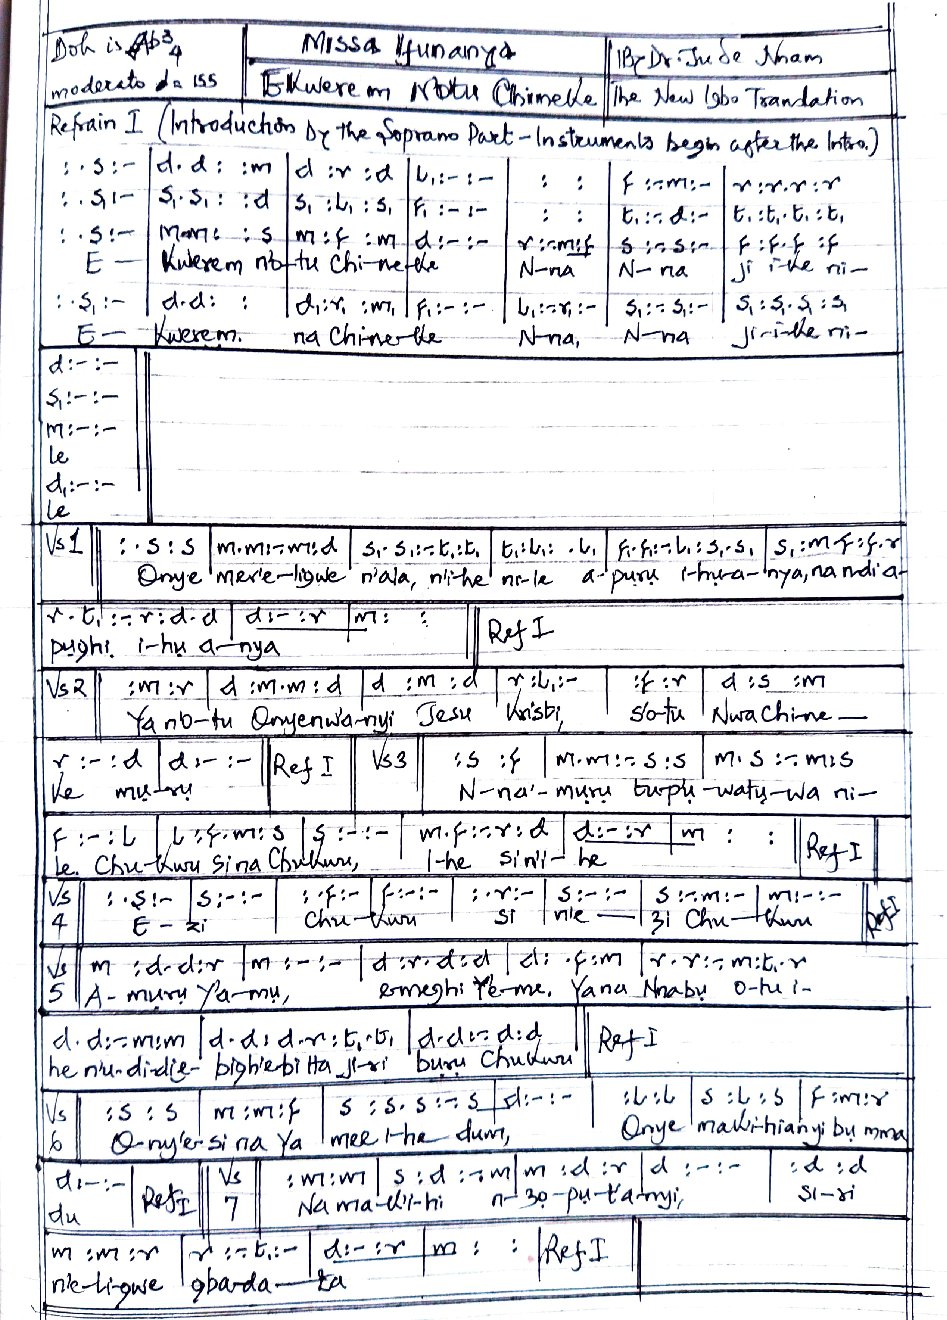 Doh is Ab 3/4
moderato d= 155
Missa Ifunanya
Ekwerem N'otu Chineke
By Dr. Jude Nnam
The New Igbo Trandation
Refrain I (Introduction by the Soprano Part - Instruments begin after the Intro.)
: . s : - | d . d : : m | d : r : d | L₁ : - : - | : : | f : - . m : - | r : r . r : r
: . s₁ : - | s₁ . s₁ : : d | s₁ : L₁ : s₁ | f₁ : - : - | : : | t₁ : - . d : - | t₁ : t₁ . t₁ : t₁
: . s : - | m . m : : s | m : f : m | d : - : - | r : - . m : f | s : - . s : - | f : f . f : f
E — Kwerem n'o-tu Chi-ne-ke N-na N-na ji i-ke ni-
: . s₁ : - | d . d : : | d₁ : r₁ : m₁ | f₁ : - : - | L₁ : - . r₁ : - | s₁ : - . s₁ : - | s₁ : s₁ . s₁ : s₁
E — Kwerem. na Chi-ne-ke N-na, N-na ji-i-ke ni-
d : - : -
s₁ : - : -
m : - : -
le
d₁ : - : -
le
Vs 1 : . s : s | m . m : - . m : d | s₁ . s₁ : - . t₁ : t₁ | t₁ : L₁ : . L₁ | f₁ . f₁ : - . L₁ : s₁ . s₁ | s₁ : m . f : f . r
Onye mere-ligwe n'ala, n'i-he ni-le a-pụrụ i-hụ-a-nya, na ndi a-
r . t₁ : - . r : d . d | d : - : r | m : :
pụghị i-hụ a-nya
Ref I
Vs 2 : m : r | d : m . m : d | d : m : d | r : L₁ : - | : f : r | d : s : m
Ya n'o-tu Onyenwa-nyi Jesu Kristi, s'o-tu Nwa Chi-ne —
r : - : d | d : - : - | Ref I
ke mụ-rụ
Vs 3 : s : f | m . m : - . s : s | m . s : - . m : s
N-na'-mụrụ tu-pụ-watụ-wa ni-
f : - : L | L : f . m : s | s : - : - | m . f : - . r : d | d : - : r | m : : | Ref I
le. Chu-kwu si na Chukwu, I-he si n'i-he
Vs 4 : . s : - | s : - : - | : . f : - | f : - : - | : . r : - | s : - : - | s : - . m : - | m : - : - | Ref I
E - zi Chu-kwu si n'e — zi Chu-kwu
Vs 5 m : d . d : r | m : - : - | d : r . d : d | d : . f : m | r . r : - . m : t₁ . r
A-mụrụ Ya-mụ, emeghi Ye-me. Ya na Nnabụ o-tu i-
d . d : - . m : m | d . d : d . r : t₁ . t₁ | d . d : - . d : d | Ref I
he n'u-di-die- bigh'ebi Ha ji-ri bụrụ Chukwu
Vs 6 : s : s | m : m : f | s : s . s : - . s | d : - : - | : L : L | s : L : s | f : m : r
O-ny'e-si na Ya mee i-he dum, Onye makị-hianyi bụ mma
d : - : - | Ref I
du
Vs 7 : m : m | s : d : - . m | m : d : r | d : - : - | : d : d
Na ma-kị-hi n-zọ-pụ-ta-nyi, si-ri
m : m : r | r : - . t₁ : - | d : - : r | m : : | Ref I
n'e-li-gwe gba-da — ta